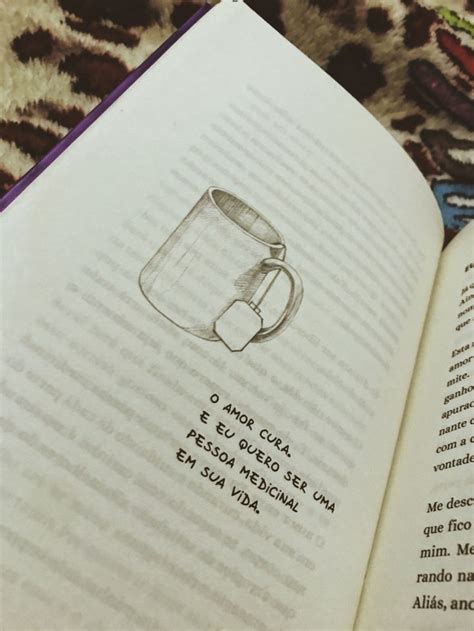 O AMOR CURA.
E EU QUERO SER UMA
PESSOA MEDICINAL
EM SUA VIDA.
já q
nom
que
Esta
amor
mite.
ganho
apura
nante
com a
vontade
Me desc
que fico
mim. Me
rando na
Aliás, anc